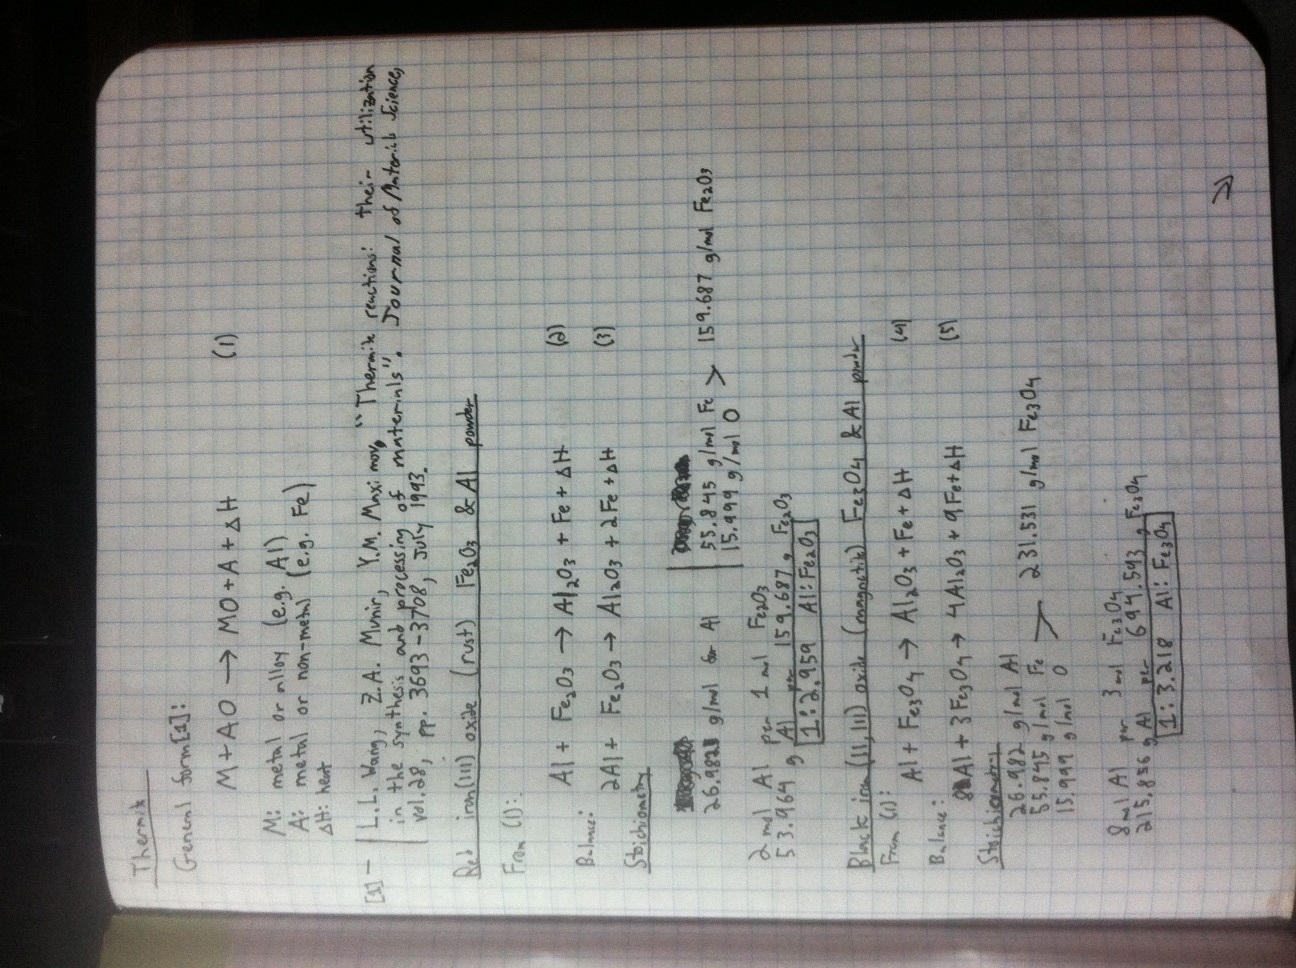 Thermite
General form [1]:
M + AO → MO + A + ΔH (1)
M: metal or alloy (e.g. Al)
A: metal or non-metal (e.g. Fe)
ΔH: heat
[1] - L.L. Wang, Z.A. Munir, Y.M. Maximov, "Thermite reactions: their utilization
in the synthesis and processing of materials". Journal of Materials Science,
vol. 28, pp. 3693-3708, July 1993.
Red iron(III) oxide (rust) Fe₂O₃ & Al powder
From (1):
Al + Fe₂O₃ → Al₂O₃ + Fe + ΔH (2)
Balance:
2Al + Fe₂O₃ → Al₂O₃ + 2Fe + ΔH (3)
Stoichiometry
26.982 g/mol for Al | 55.845 g/mol Fe > 159.687 g/mol Fe₂O₃
15.999 g/mol O
2 mol Al per 1 mol Fe₂O₃
53.964 g Al per 159.687 g Fe₂O₃
1:2.959 Al:Fe₂O₃
Black iron(II,III) oxide (magnetite) Fe₃O₄ & Al powder
From (1):
Al + Fe₃O₄ → Al₂O₃ + Fe + ΔH (4)
Balance:
8Al + 3Fe₃O₄ → 4Al₂O₃ + 9Fe + ΔH (5)
Stoichiometry
26.982 g/mol Al
55.845 g/mol Fe > 231.531 g/mol Fe₃O₄
15.999 g/mol O
8 mol Al per 3 mol Fe₃O₄
215.856 g Al per 694.593 g Fe₃O₄
1:3.218 Al:Fe₃O₄